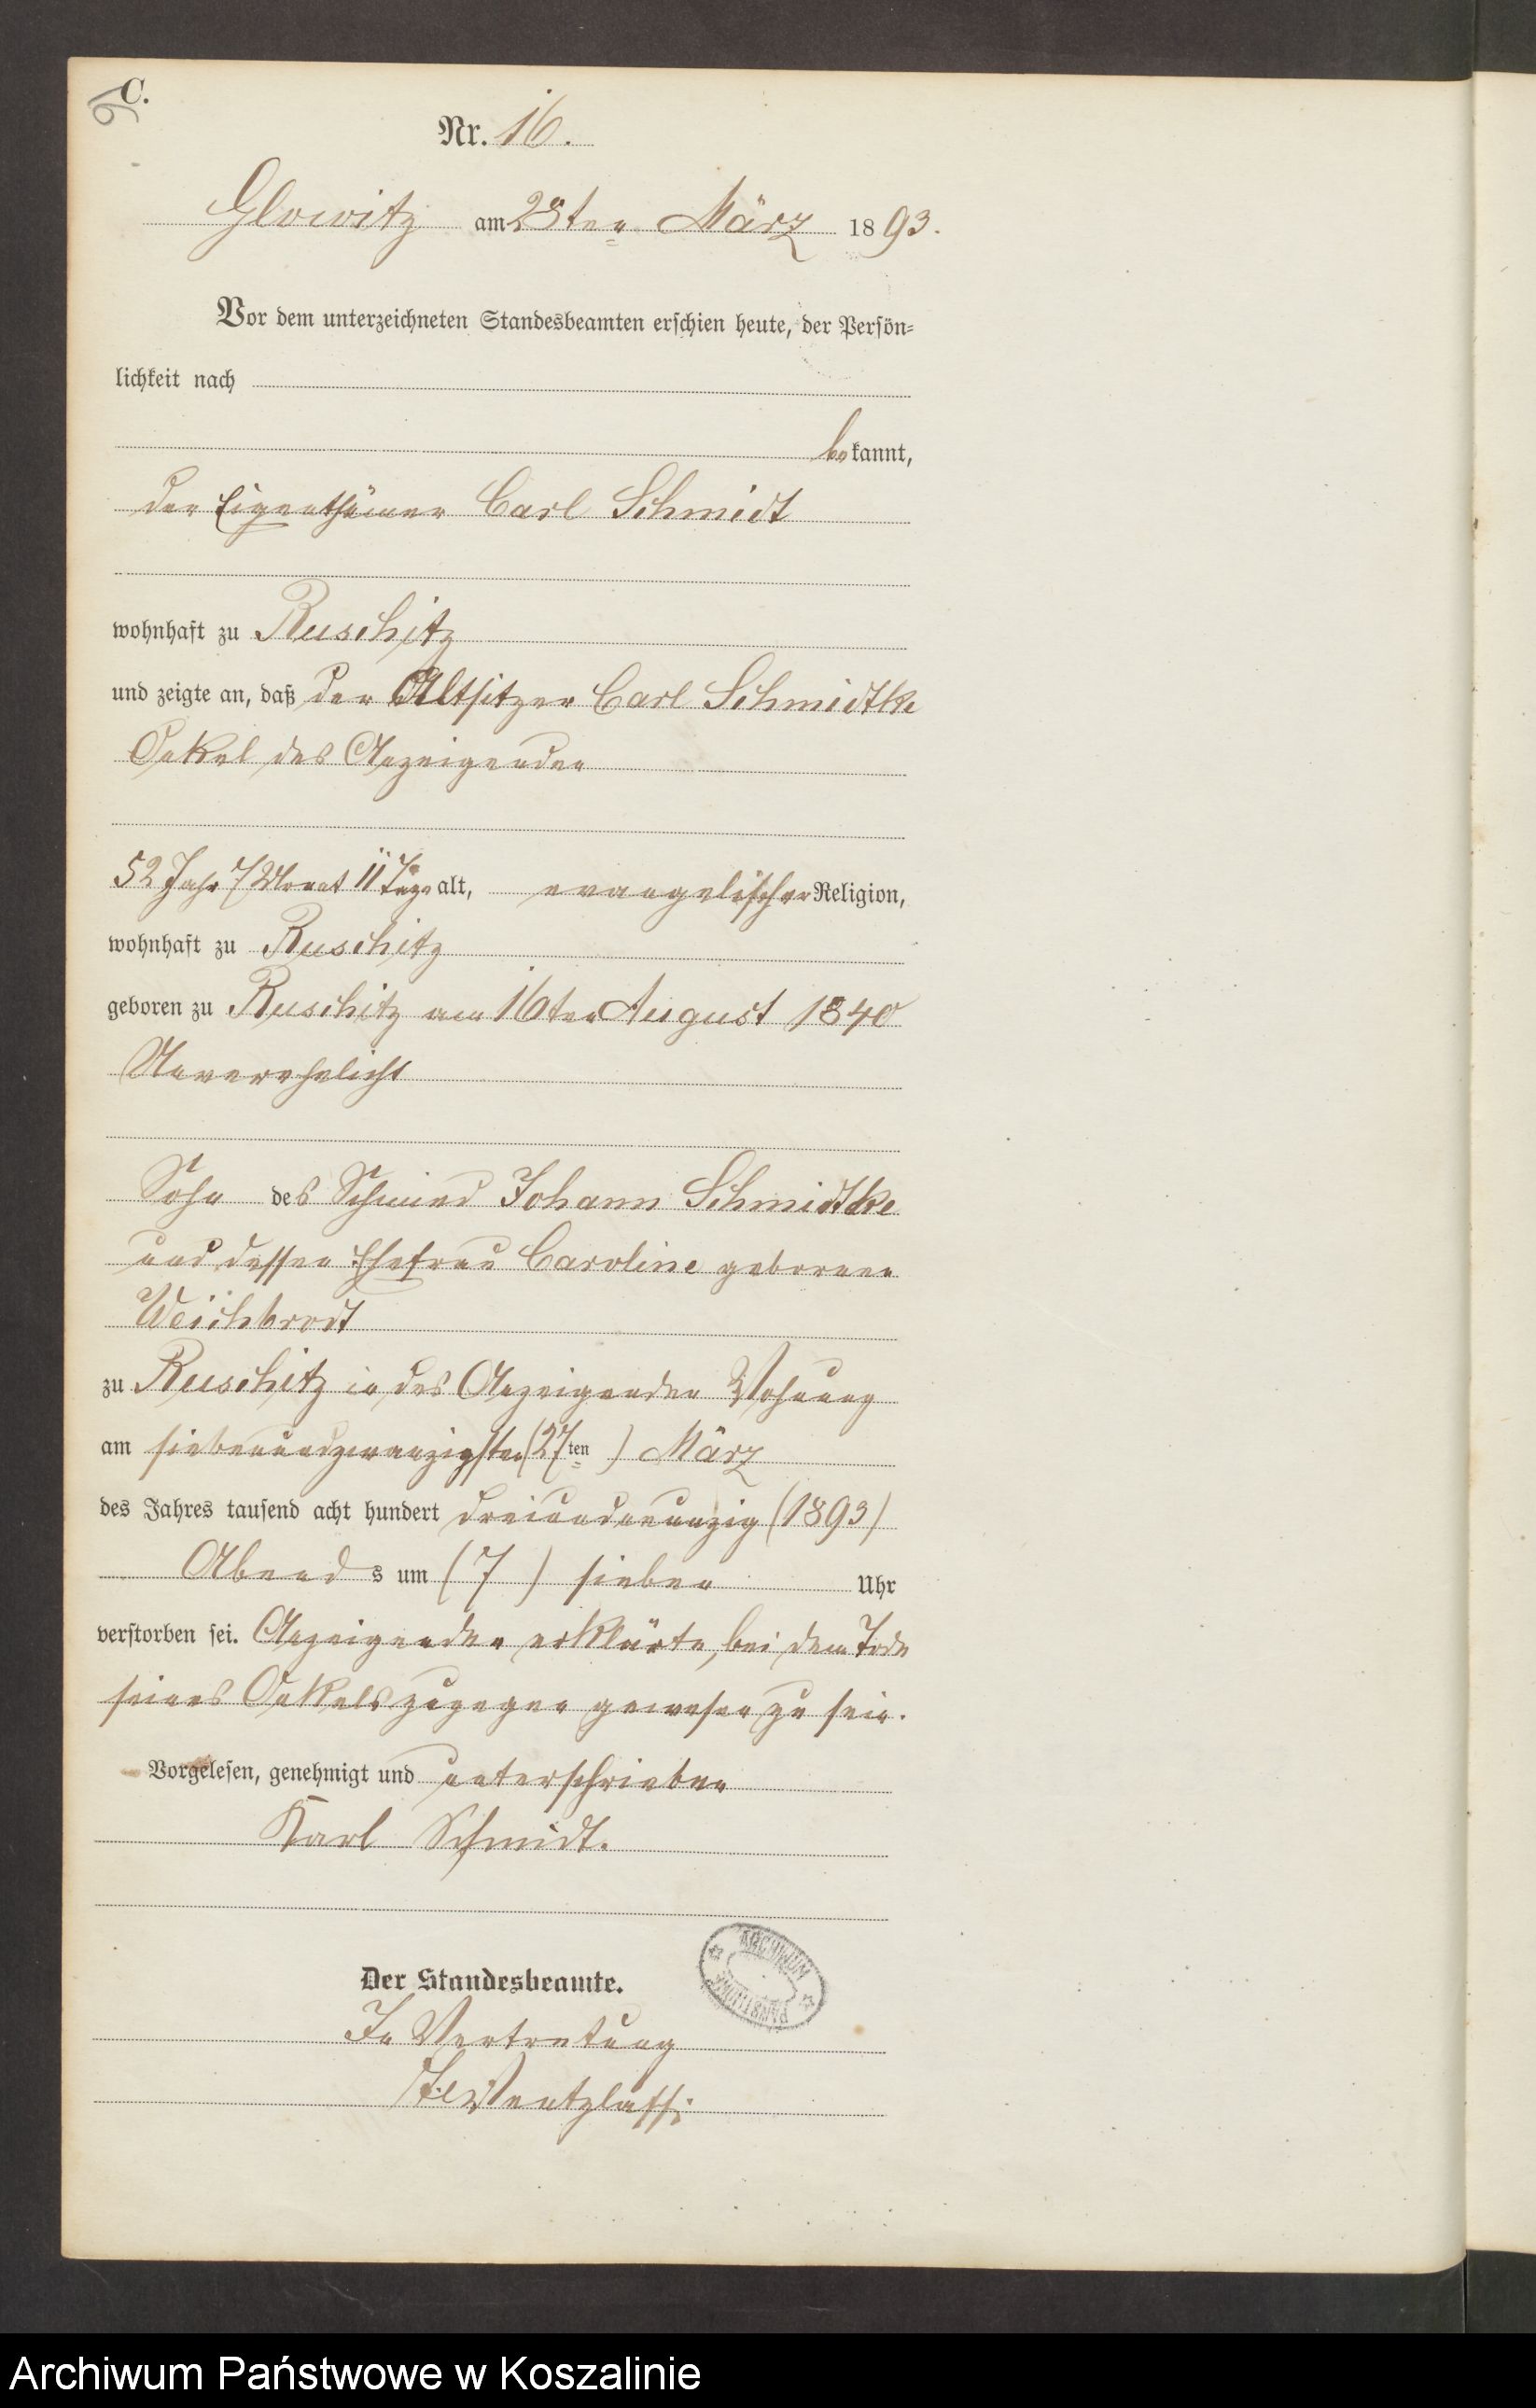 C.
Nr. 16.
Glowitz am 28ten März 1893.
Vor dem unterzeichneten Standesbeamten erschien heute, der Persön=
lichkeit nach
bekannt,
der Eigenthümer Carl Schmidt
wohnhaft zu Ruschitz
und zeigte an, daß der Altsitzer Carl Schmidtke
Onkel des Anzeigenden
52 Jahr 7 Monat 11 Tage alt, evangelischer Religion,
wohnhaft zu Ruschitz
geboren zu Ruschitz am 16ten August 1840
Unverehelicht
Sohn des Schmied Johann Schmidtke
und dessen Ehefrau Caroline geborenen
Weichbrodt
zu Ruschitz in des Anzeigenden Wohnung
am siebenundzwanzigsten (27ten) März
des Jahres tausend acht hundert dreiundneunzig (1893)
Abends um (7) sieben Uhr
verstorben sei. Anzeigender erklärte, bei dem Tode
seines Onkels zugegen gewesen zu sein.
Vorgelesen, genehmigt und unterschrieben
Karl Schmidt.
ARCHIWUM
PAŃSTWOWE
Der Standesbeamte.
In Vertretung
Wentzlaff
Archiwum Państwowe w Koszalinie